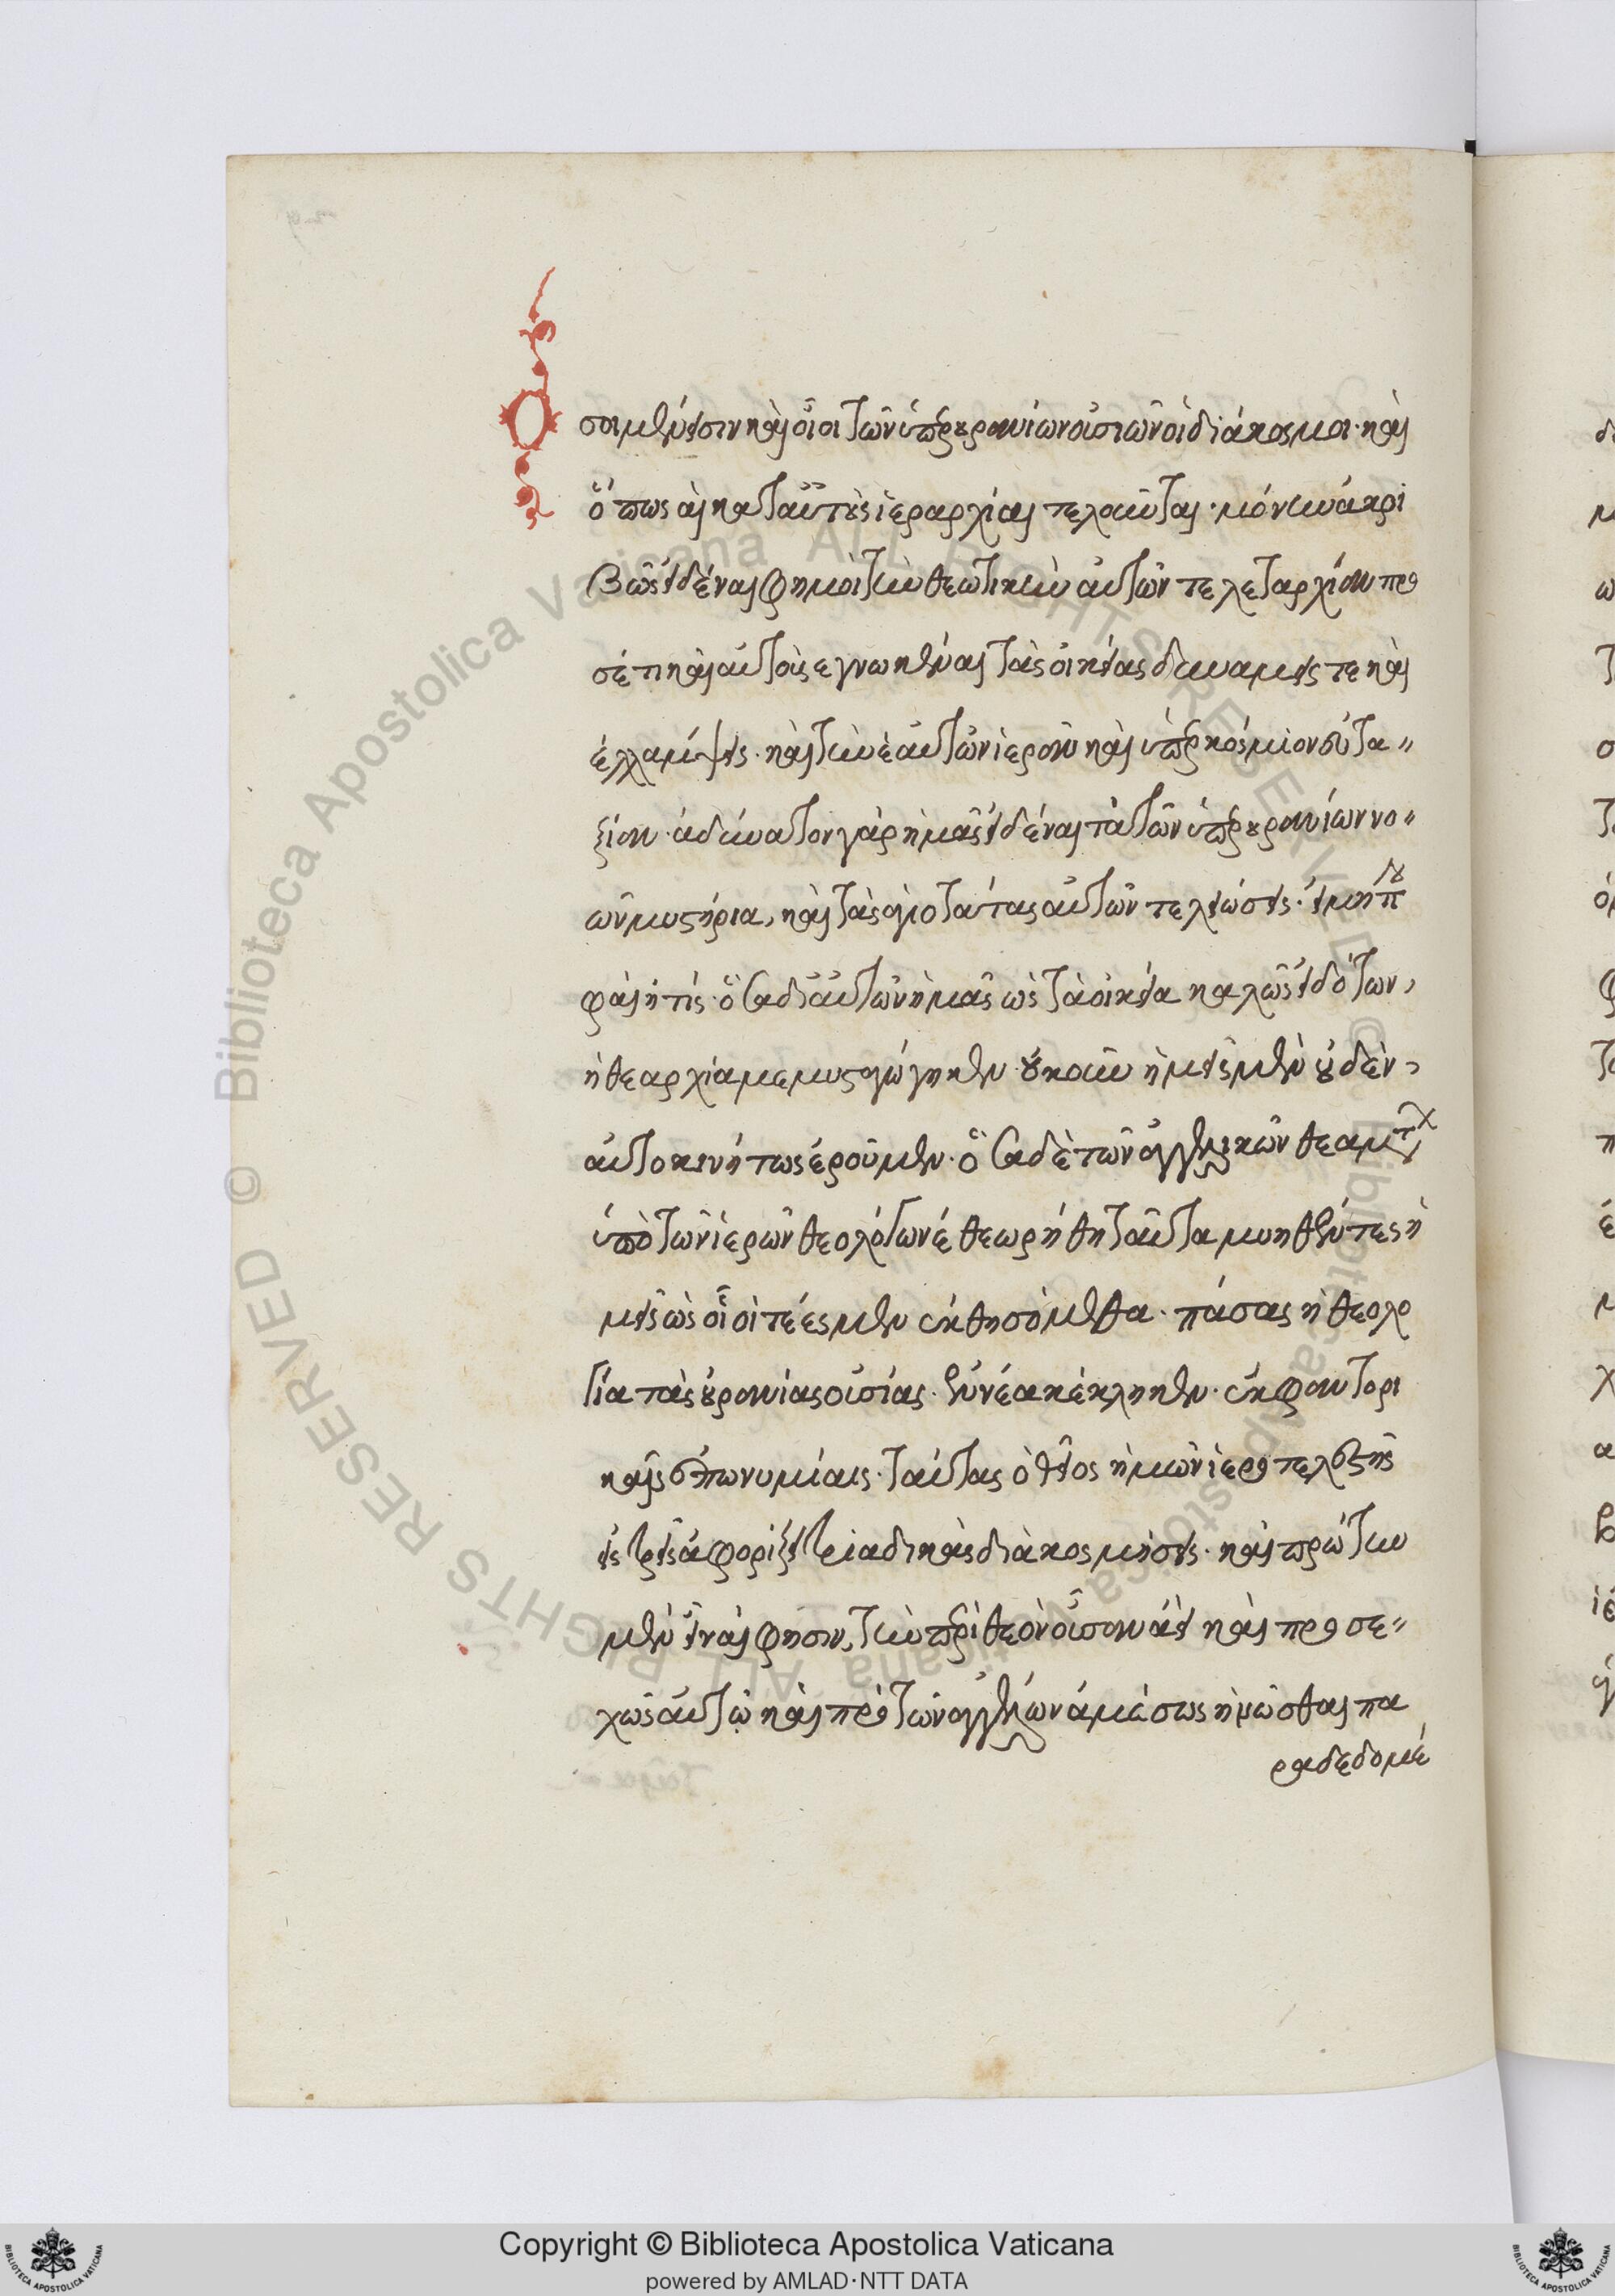 Ὅσοι μέν εἰσιν καὶ οἷοι τῶν ὑπερουρανίων οὐσιῶν οἱ διάκοσμοι· καὶ
ὅπως αἱ κατ' αὐτοὺς ἱεραρχίαι τελοῦνται· μόνην ἀκρι
βῶς εἰδέναι φημὶ τὴν θεωτικὴν αὐτῶν τελεταρχίαν προ
σέτι καὶ αὐτοὺς ἐγνωκέναι τὰς οἰκείας δυνάμεις τε καὶ
ἐλλάμψεις· καὶ τὴν ἑαυτῶν ἱερὰν καὶ ὑπερκόσμιον εὐτα
ξίαν· ἀδύνατον γὰρ ἡμᾶς εἰδέναι τὰ τῶν ὑπερουρανίων νο
ῶν μυστήρια, καὶ τὰς ἁγιοτάτας αὐτῶν τελειώσεις· εἰ μή που
φαίη τίς· ὅσα δι' αὐτῶν ἡμᾶς ὡς τὰ οἰκεῖα καλῶς εἰδότων,
ἡ θεαρχία μεμυσταγώγηκεν· οὐκοῦν ἡμεῖς μὲν οὐδὲν,
αὐτοκινήτως ἐροῦμεν· ὅσα δὲ τῶν ἀγγελικῶν θεαμάτων
ὑπὸ τῶν ἱερῶν θεολόγων ἐθεωρήθη ταῦτα μυηθέντες ἡ
μεῖς ὡς οἷοί τέ ἐσμεν ἐκθησόμεθα· πάσας ἡ θεολο
γία τὰς οὐρανίας οὐσίας· ἐννέα κέκληκεν· ἐκφαντορι
καῖς ἐπωνυμίαις· ταύτας ὁ θεῖος ἡμῶν ἱεροτελεστὴς
εἰς τρεῖς ἀφορίζει τριαδικὰς διακοσμήσεις· καὶ πρώτην
μὲν εἶναι φησιν, τὴν περὶ θεὸν οὖσαν ἀεὶ καὶ προσε
χῶς αὐτῷ καὶ πρὸ τῶν ἀγγέλων ἀμέσως ἡνῶσθαι πα
ραδεδομέ
Copyright © Biblioteca Apostolica Vaticana
powered by AMLAD·NTT DATA